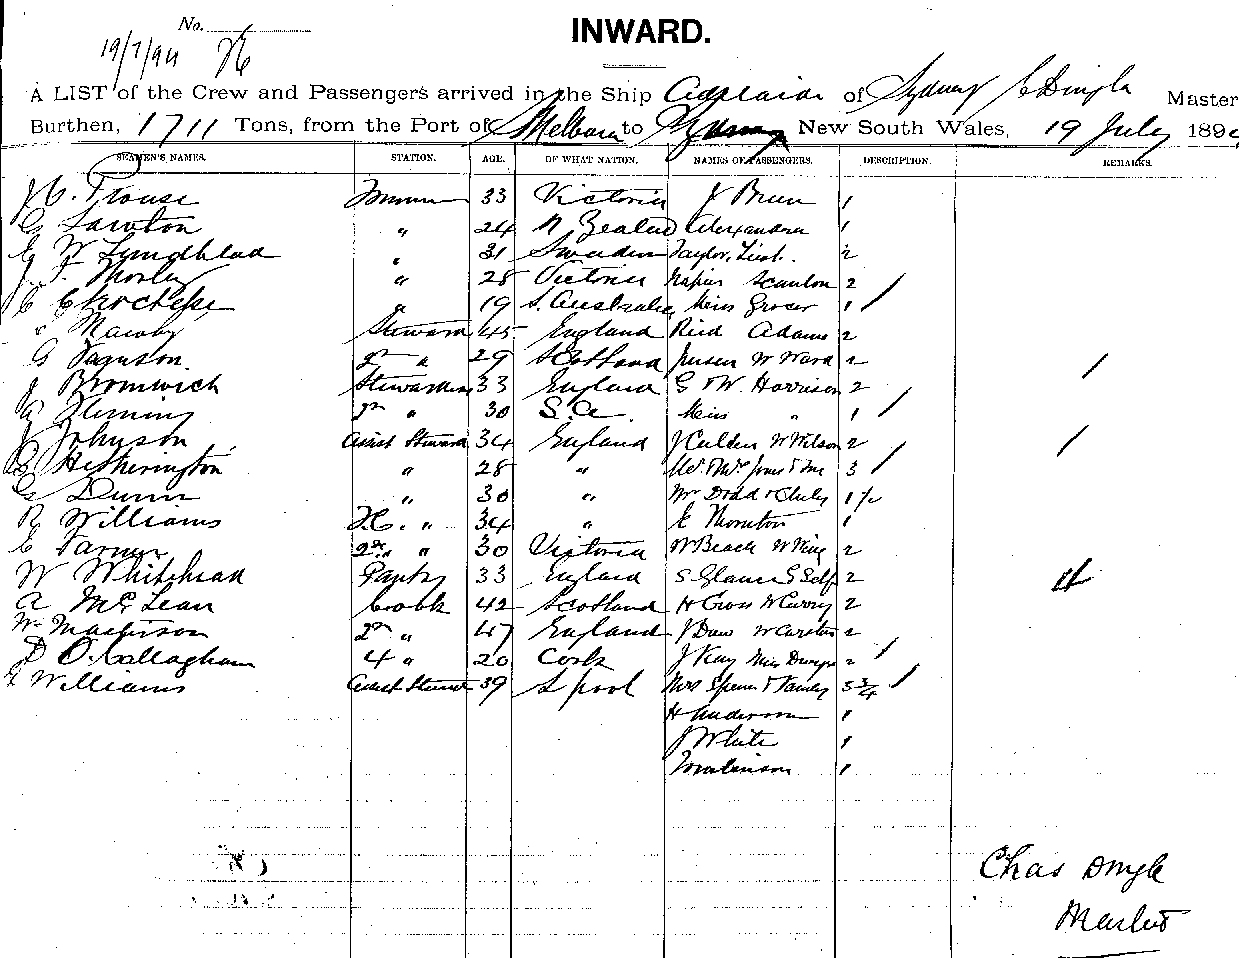 No.
19/7/94
INWARD.
A LIST of the Crew and Passengers arrived in the Ship Adelaide of Sydney C Dingle Master
Burthen, 1711 Tons, from the Port of Melbourne to Sydney New South Wales, 19 July 189
SEAMEN'S NAMES. STATION. AGE. OF WHAT NATION. NAMES OF PASSENGERS. DESCRIPTION. REMARKS.
Prouse 33 Victoria J 1
G Lawton " 24 N Zealand Alexandra 1
G W Lyndblad " 31 Sweden Taylor, Lieut. 2
J F Morley " 28 Victoria Napier Scanlon 2 /
C " 19 S. Australia Miss Grocer 1 /
Steward 45 England Reid Adams 2
G 2nd " 29 Scotland Jensen W Ward 2 /
J Bromwich Stewardess 33 England G & W. Harrison 2
Fleming 2nd " 30 S.A. Miss " 1 /
J Johnson Assist Steward 34 England J Culden W Wilson 2 /
Hetherington " 28 " Mr. & Mrs. Jones & 3 /
G Dunn " 30 " Mr Dodd & Child 1 1/2
R Williams F.C. " 34 " E Thornton 1
E 2nd " 30 Victoria W Beach W King 2
W Whitehead Pantry 33 England S Self 2 4
A McLean Cook 42 Scotland H Cross W Curry 2
2nd " 47 England J Daw W 2
D O'Callagham 4 " 20 Cork J Kay Miss 2 /
Williams Assist Steward 39 L pool Mrs Spence & Family 3 3/4 /
H Anderson 1
J White 1
Tomlinson 1
Chas Dingle
Master